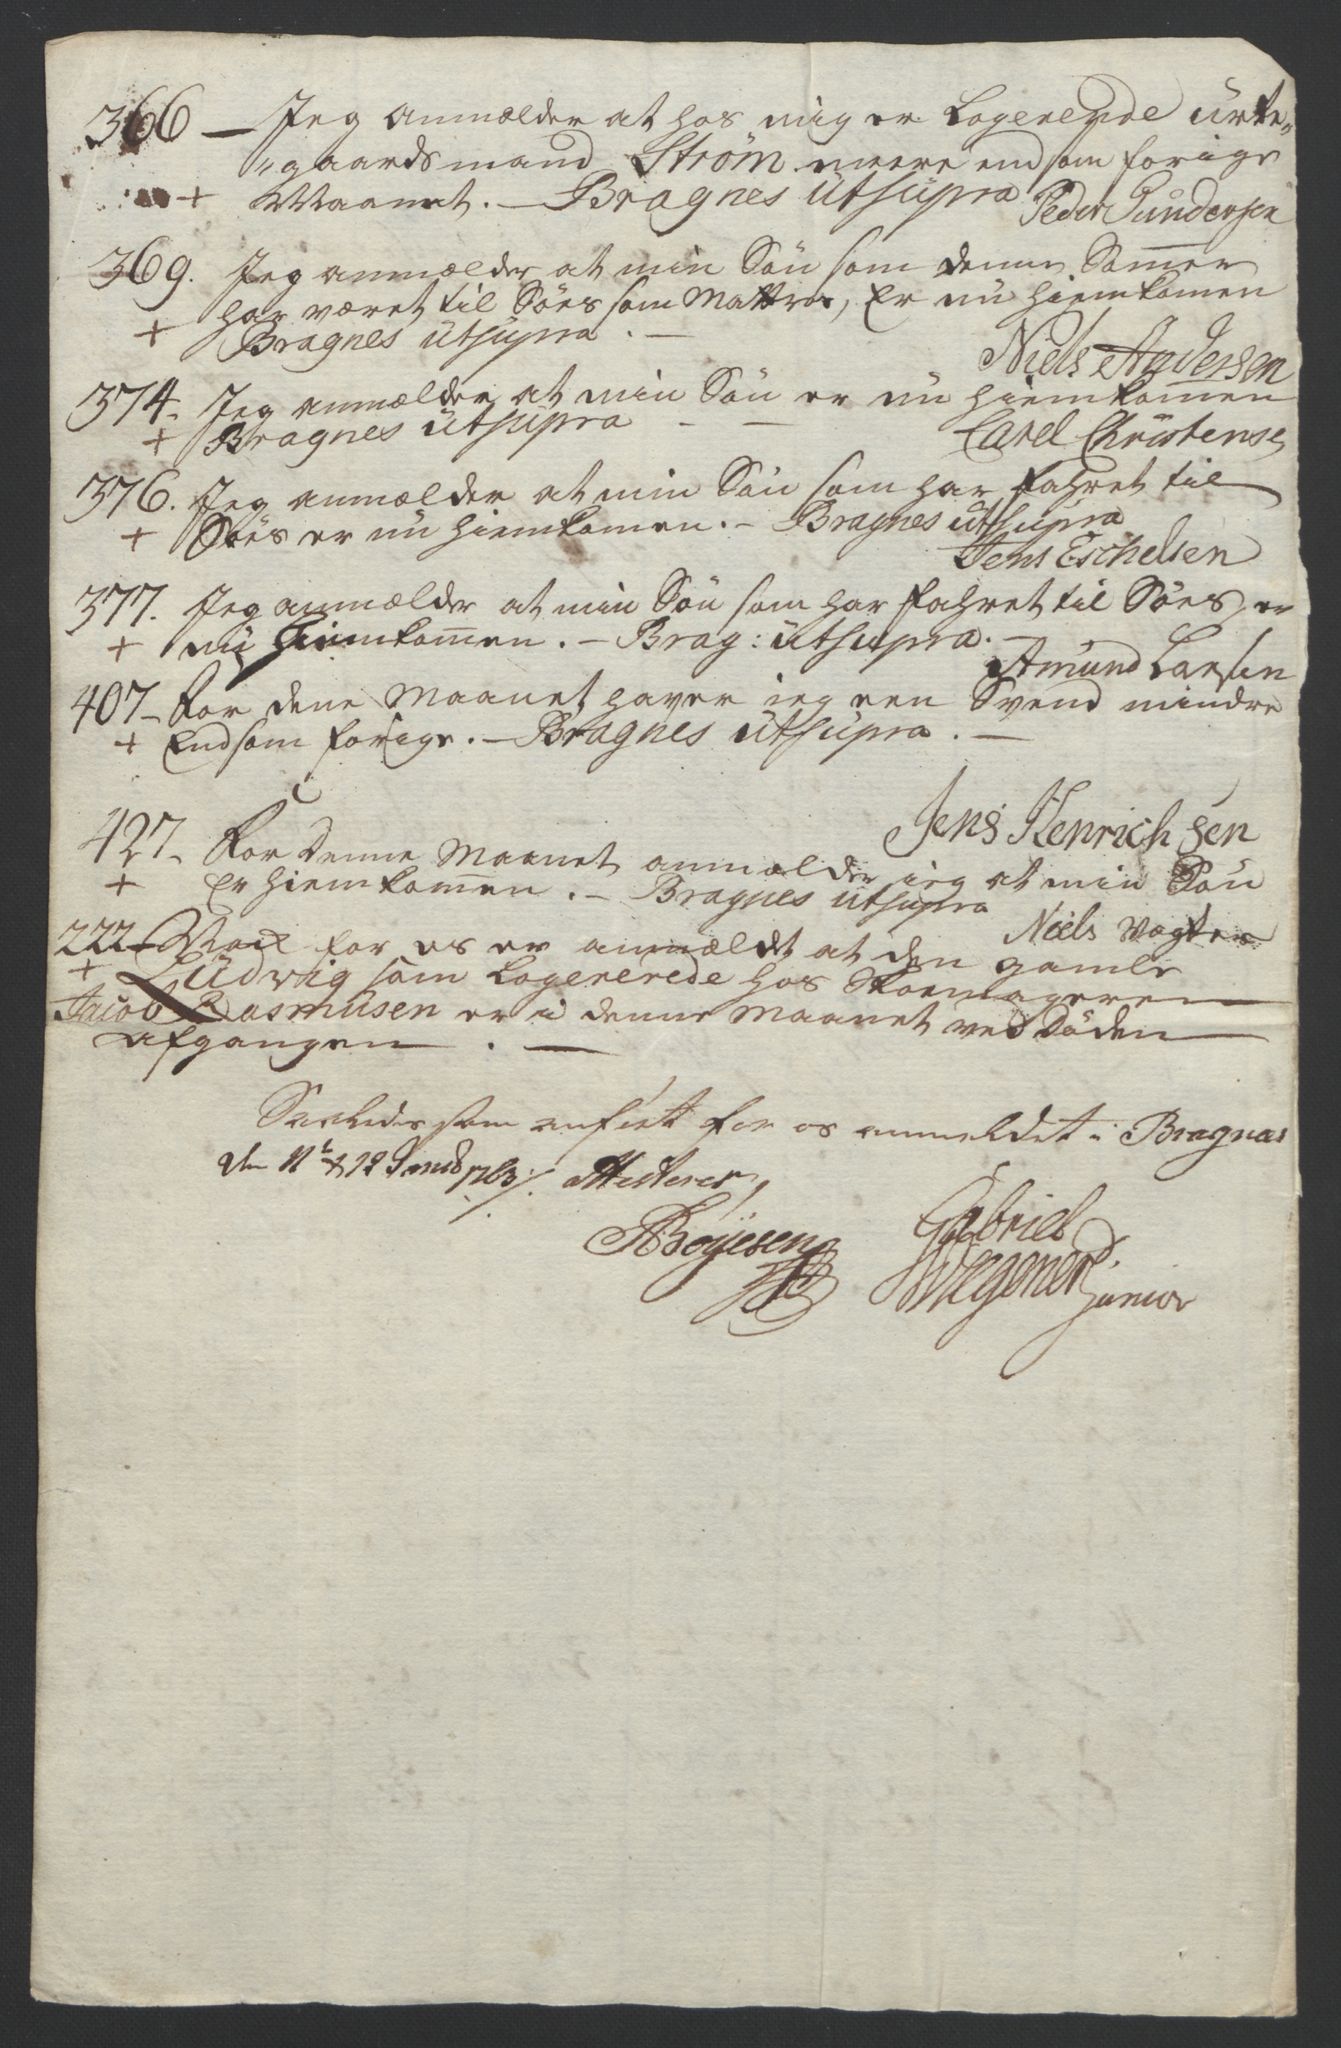 366 — Jeg anmælder at hos mig er Logerende urte„
„gaards mand Strøm meere end som forige
+ Maanet. — Bragnes ut supra Peder Gundersen
369. Jeg anmælder at min Søn som denne Somer
har været til Søes som Mattros, Er nu hiemkomen
+ Bragnes ut supra. —
Niels Andersen
374. Jeg anmælder at min Søn er nu hiemkomen
+ Bragnes ut supra — — Carel Christense
376. Jeg anmælder at min Søn som har fahret til
+ Søes er nu hiemkomen. — Bragnes ut supra
Jens Eschelsen
377. Jeg anmælder at min Søn som har fahret til Søes, er
+ nu hiemkommen. — Brag: ut supra. —
Amund Larsen
407 — For dene Maanet haver ieg een Svend mindre
+ Endsom forige. — Bragnes ut supra. —
Jens Henrichsen
427 — For denne Maanet anmælder ieg at min Søn
+ Er hiemkommen. — Bragnes ut supra
Niels Vogter
222 — for os er anmældt at den gamle
+ Ludvig som Logererede hos Skoemageren
Jacob Rasmusen er i denne Maanet ved Døden
afgangen. —
Saaledes som anført for os anmeldet i Bragnæs
den 11te & 12 1763 /. Attesterer,
Boÿesen Gabriel
Wegener
junior